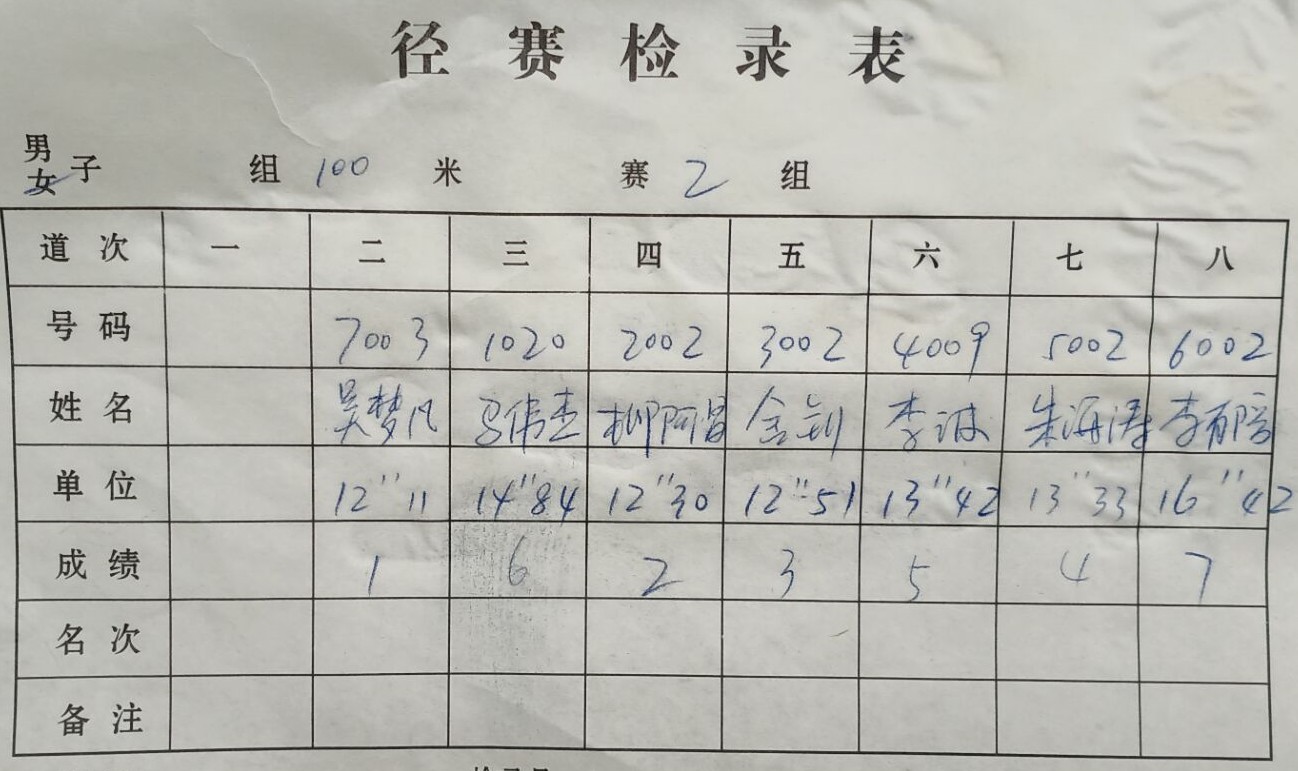 径赛检录表
男
女 子 组 100 米 赛 2 组
道次 一 二 三 四 五 六 七 八
号码 7003 1020 2002 3002 4009 5002 6002
姓名 吴梦凡 马伟杰 柳阿昌 金钊 李波 朱海涛 李有信
单位 12"11 14"84 12"30 12"51 13"42 13"33 16"42
成绩 1 6 2 3 5 4 7
名次
备注